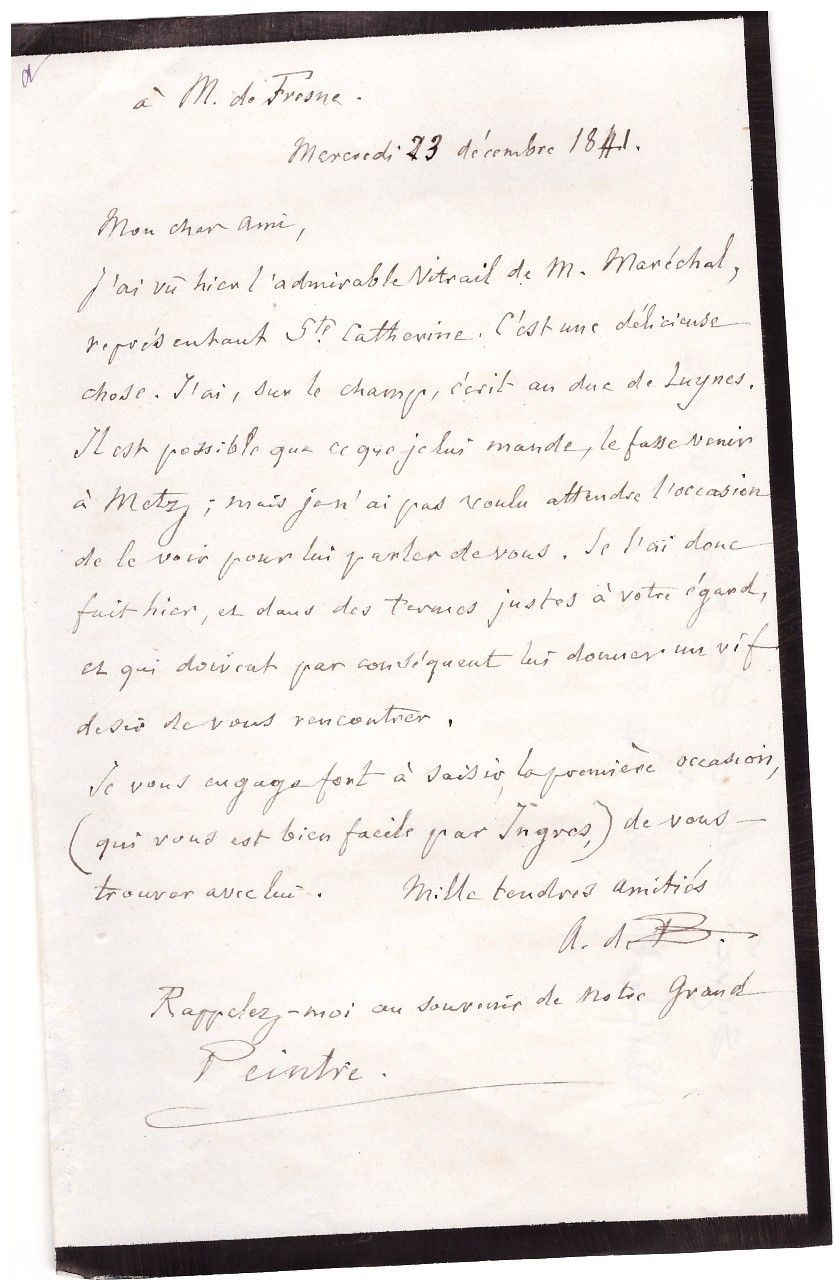 à M. de Fresne.
Mercredi 23 décembre 1841.
Mon cher ami,
J'ai vû hier l'admirable Vitrail de M. Maréchal,
représentant Ste Catherine. C'est une délicieuse
chose. J'ai, sur le champ, écrit au duc de Luynes.
Il est possible que ce que je lui mande, le fasse venir
à Metz ; mais je n'ai pas voulu attendre l'occasion
de le voir pour lui parler de vous. Je l'ai donc
fait hier, et dans des termes justes à votre égard,
et qui doivent par conséquent lui donner un vif
desir de vous rencontrer.
Je vous engage fort à saisir, la première occasion,
(qui vous est bien facile par Ingres,) de vous —
trouver avec lui. Mille tendres amitiés
A. d. B.
Rappelez-moi au souvenir de notre Grand
Peintre.